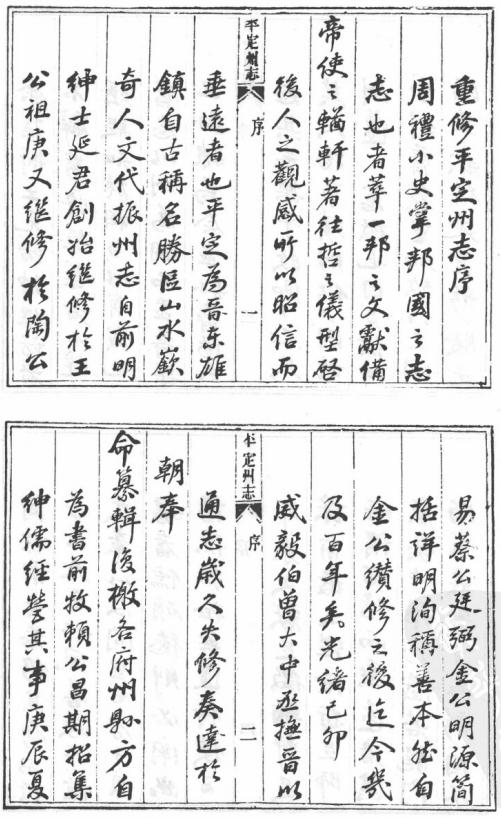 重修平定州志序
周禮小史掌邦國之志
志也者萃一邦之文獻備
帝使之輶軒著往哲之儀型啓
後人之觀感所以昭信而
平定州志
序
一
垂遠者也平定為晉東雄
鎮自古稱名勝區山水嶔
奇人文代振州志自前明
紳士延君創始繼修於王
公祖庚又繼修於陶公
易蔡公廷弼金公明源簡
括詳明洵稱善本然自
金公纘修之後迄今幾
及百年矣光緒己卯
威毅伯曾大中丞撫晉以
平定州志
序
二
通志歲久失修奏達於
朝奉
命纂輯復檄各府州縣方自
為書前牧賴公昌期招集
紳儒經營其事庚辰夏